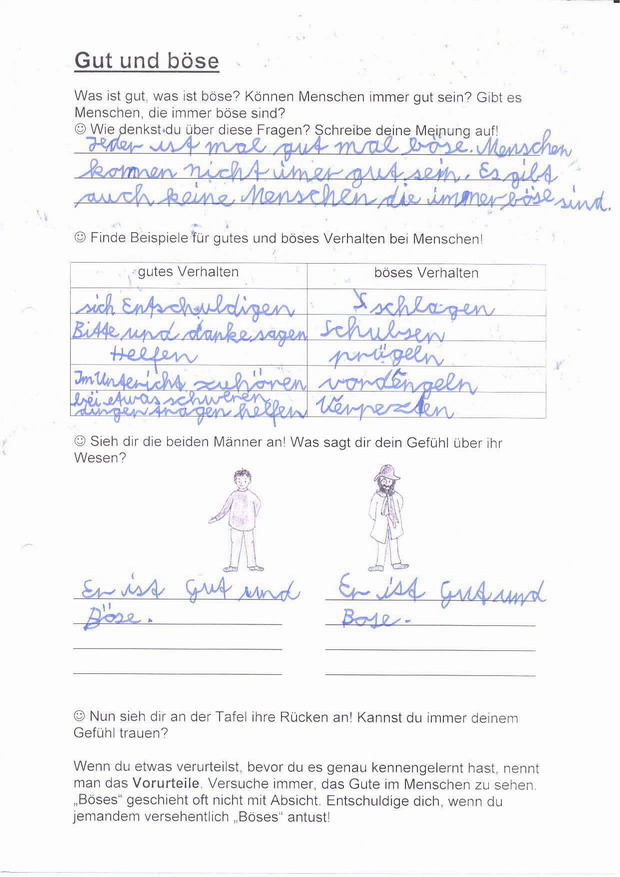 Gut und böse
Was ist gut, was ist böse? Können Menschen immer gut sein? Gibt es
Menschen, die immer böse sind?
☺ Wie denkst du über diese Fragen? Schreibe deine Meinung auf!
Jeder ist mal gut mal böse. Menschen
konnen nicht imer gut sein. Es gibt
auch keine Menschen die immer böse sind.
☺ Finde Beispiele für gutes und böses Verhalten bei Menschen!
gutes Verhalten böses Verhalten
sich Entschuldigen schlagen
Bitte und danke sagen schubsen
Helfen prügeln
Im Unterricht zuhören vordengeln
bei etwas schweren
dingen tragen helfen Verpezten
☺ Sieh dir die beiden Männer an! Was sagt dir dein Gefühl über ihr
Wesen?
Er ist Gut und Er ist Gut und
Böse. Bose.
☺ Nun sieh dir an der Tafel ihre Rücken an! Kannst du immer deinem
Gefühl trauen?
Wenn du etwas verurteilst, bevor du es genau kennengelernt hast, nennt
man das Vorurteile. Versuche immer, das Gute im Menschen zu sehen.
„Böses“ geschieht oft nicht mit Absicht. Entschuldige dich, wenn du
jemandem versehentlich „Böses“ antust!